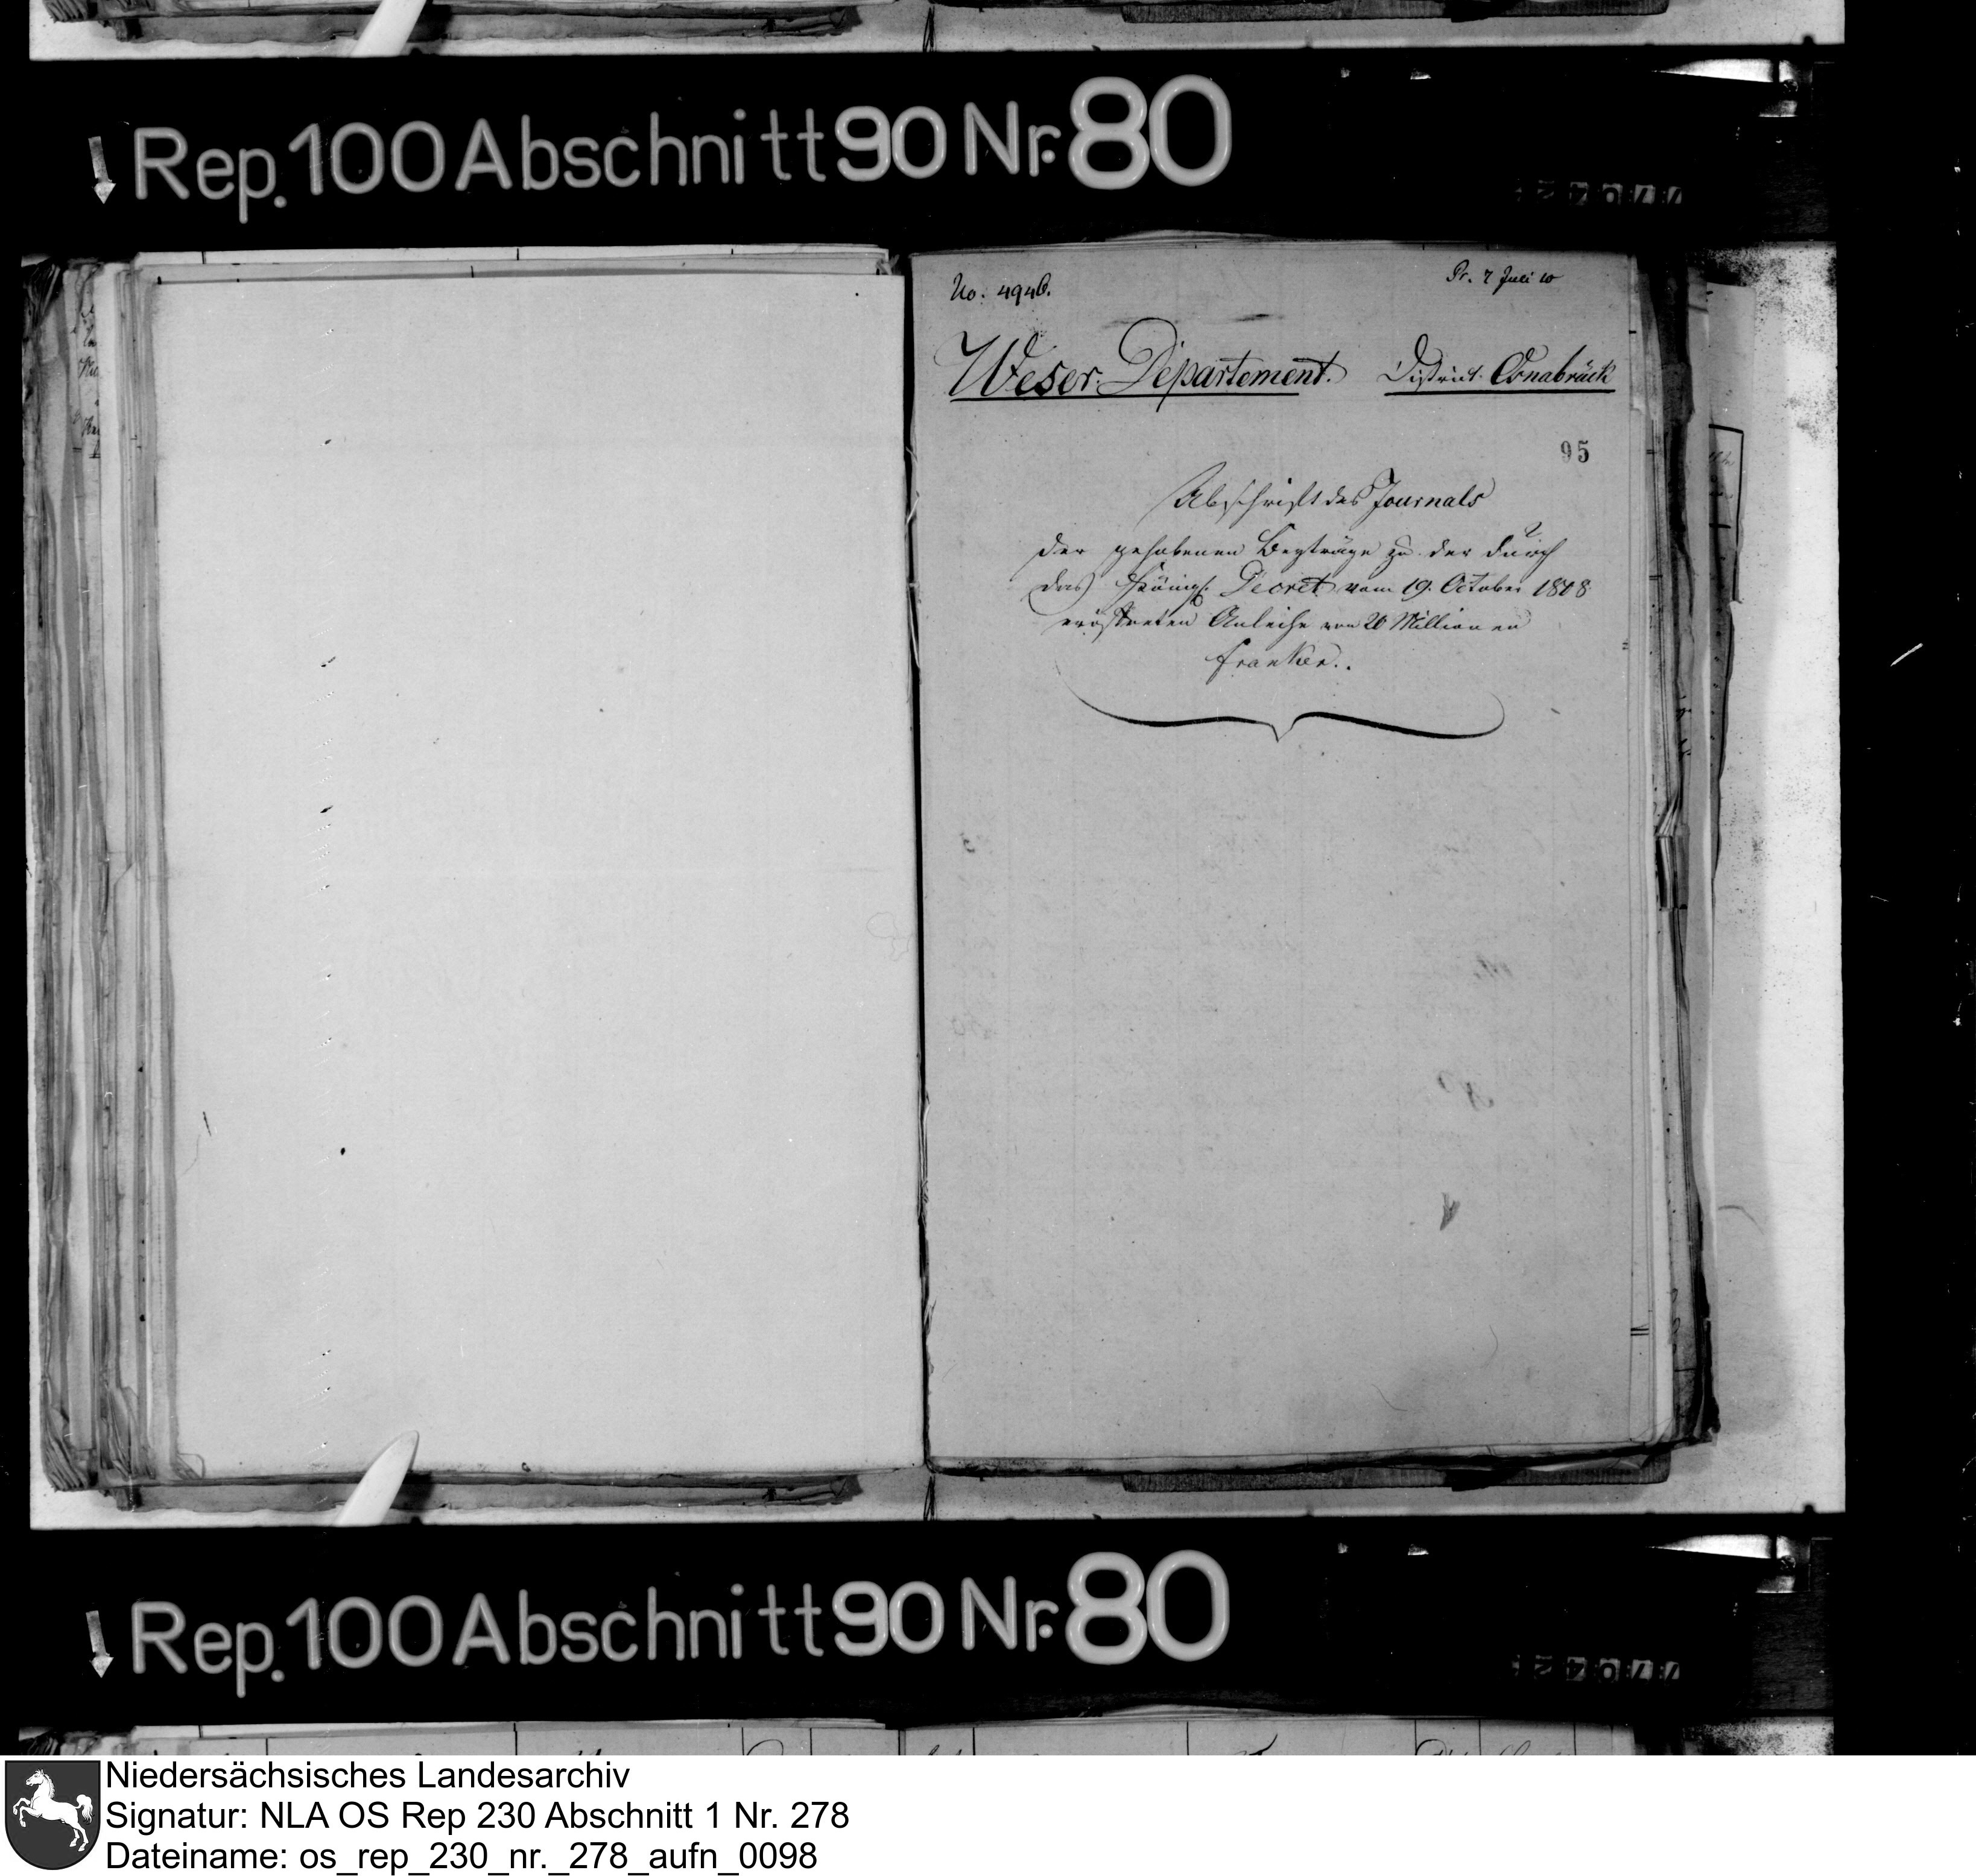 Rep. 100 Abschnitt 90 Nr. 80
No. 4946.
Pr. 7 Juli 10
Weser. Departement. District. Osnabrück
95
Abschrift des Journals
der gehobenen Beyträge zu der durch
das Königl. Decret vom 19. October 1808
eröffneten Anleihe von 20 Millionen
Franken.
Rep. 100 Abschnitt 90 Nr. 80
Niedersächsisches Landesarchiv
Signatur: NLA OS Rep 230 Abschnitt 1 Nr. 278
Dateiname: os_rep_230_nr._278_aufn_0098